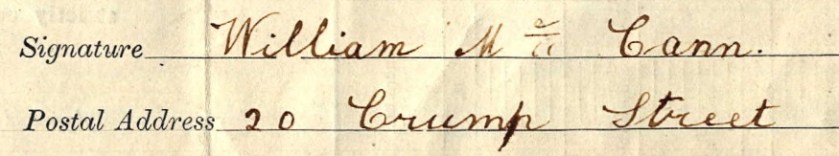 Signature William Mc Cann.
Postal Address 20 Crump Street